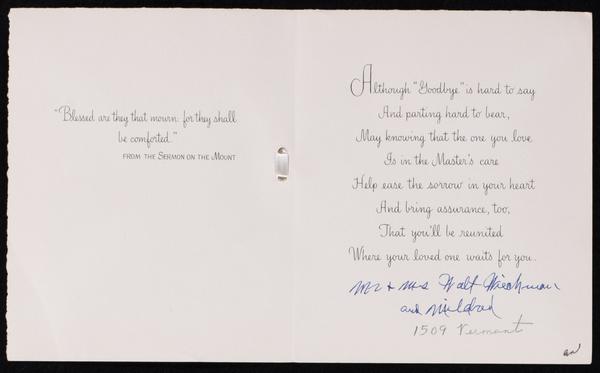 "Blessed are they that mourn: for they shall
be comforted."
FROM THE SERMON ON THE MOUNT
Although "Goodbye" is hard to say
And parting hard to bear,
May knowing that the one you love
Is in the Master's care
Help ease the sorrow in your heart
And bring assurance, too,
That you'll be reunited
Where your loved one waits for you.
Mr & Mrs Walt Wiechman
and Mildred
1509 Vermont